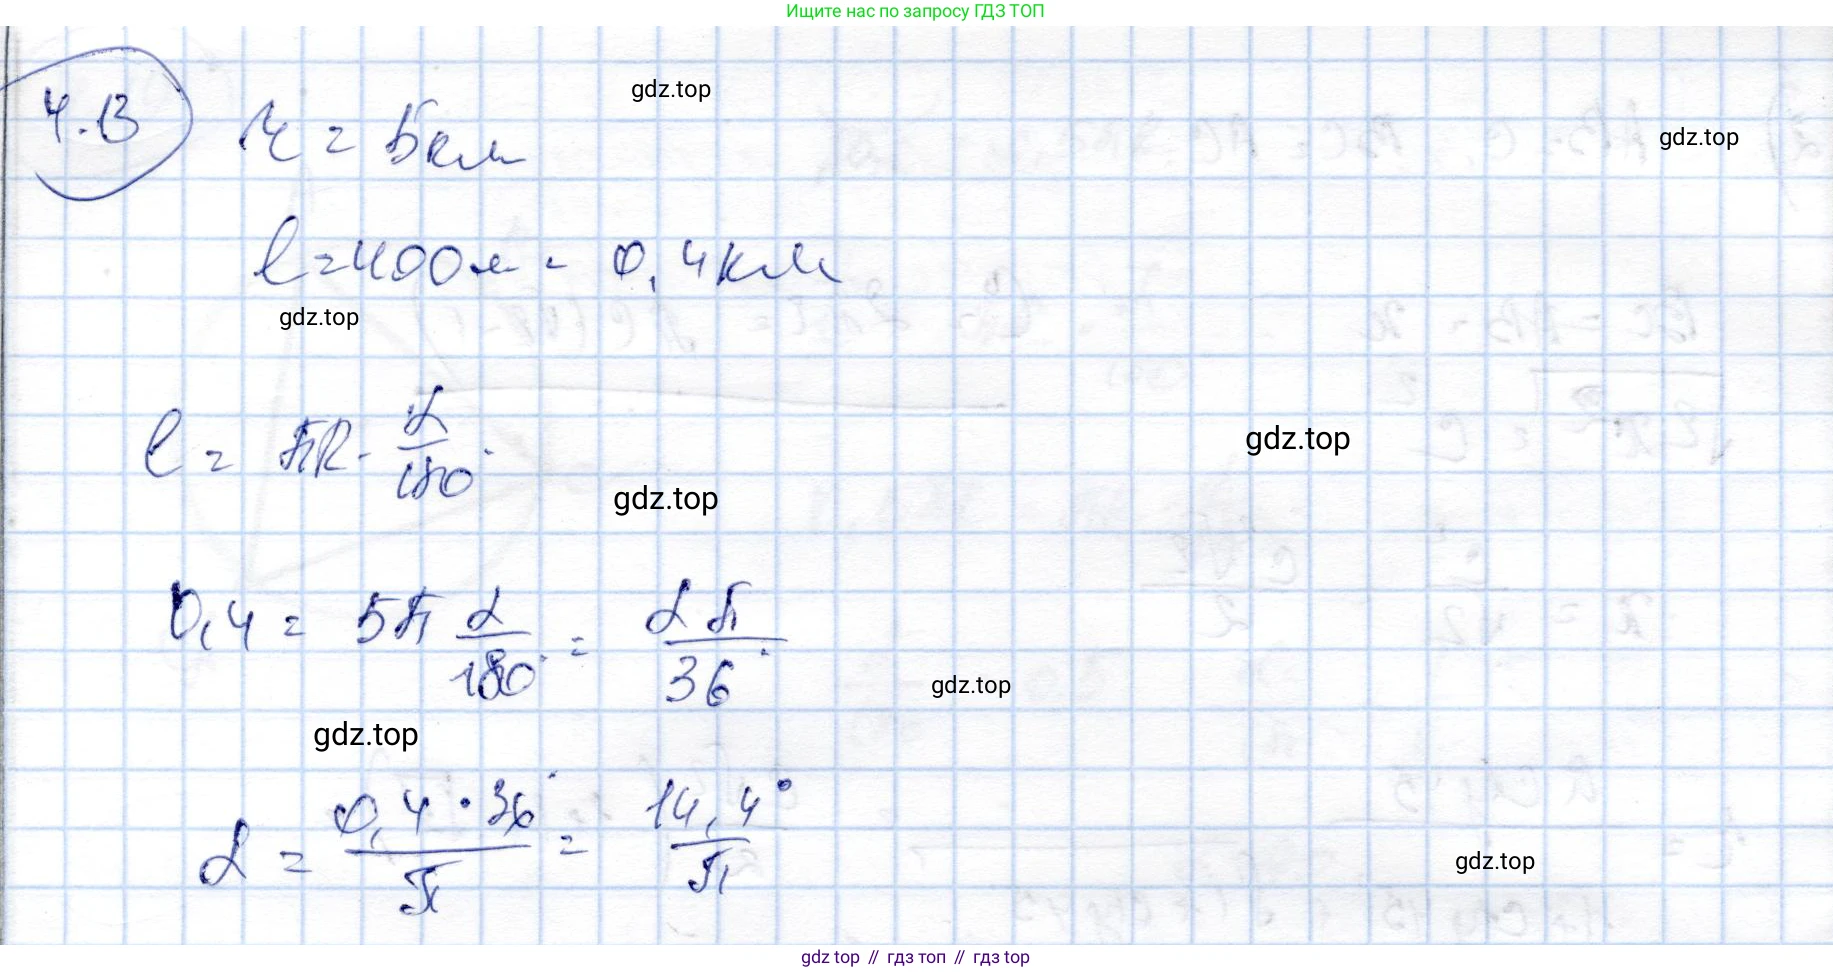 Ищите нас по запросу ГДЗ ТОП
4.13 r = 5км
gdz.top
gdz.top
l = 400м = 0,4км
gdz.top
l = πR · α/180°
gdz.top
gdz.top
0,4 = 5π α/180° = απ/36°
gdz.top
gdz.top
α = 0,4 · 36°/π = 14,4°/π
gdz.top
gdz top // гдз топ // гдз top